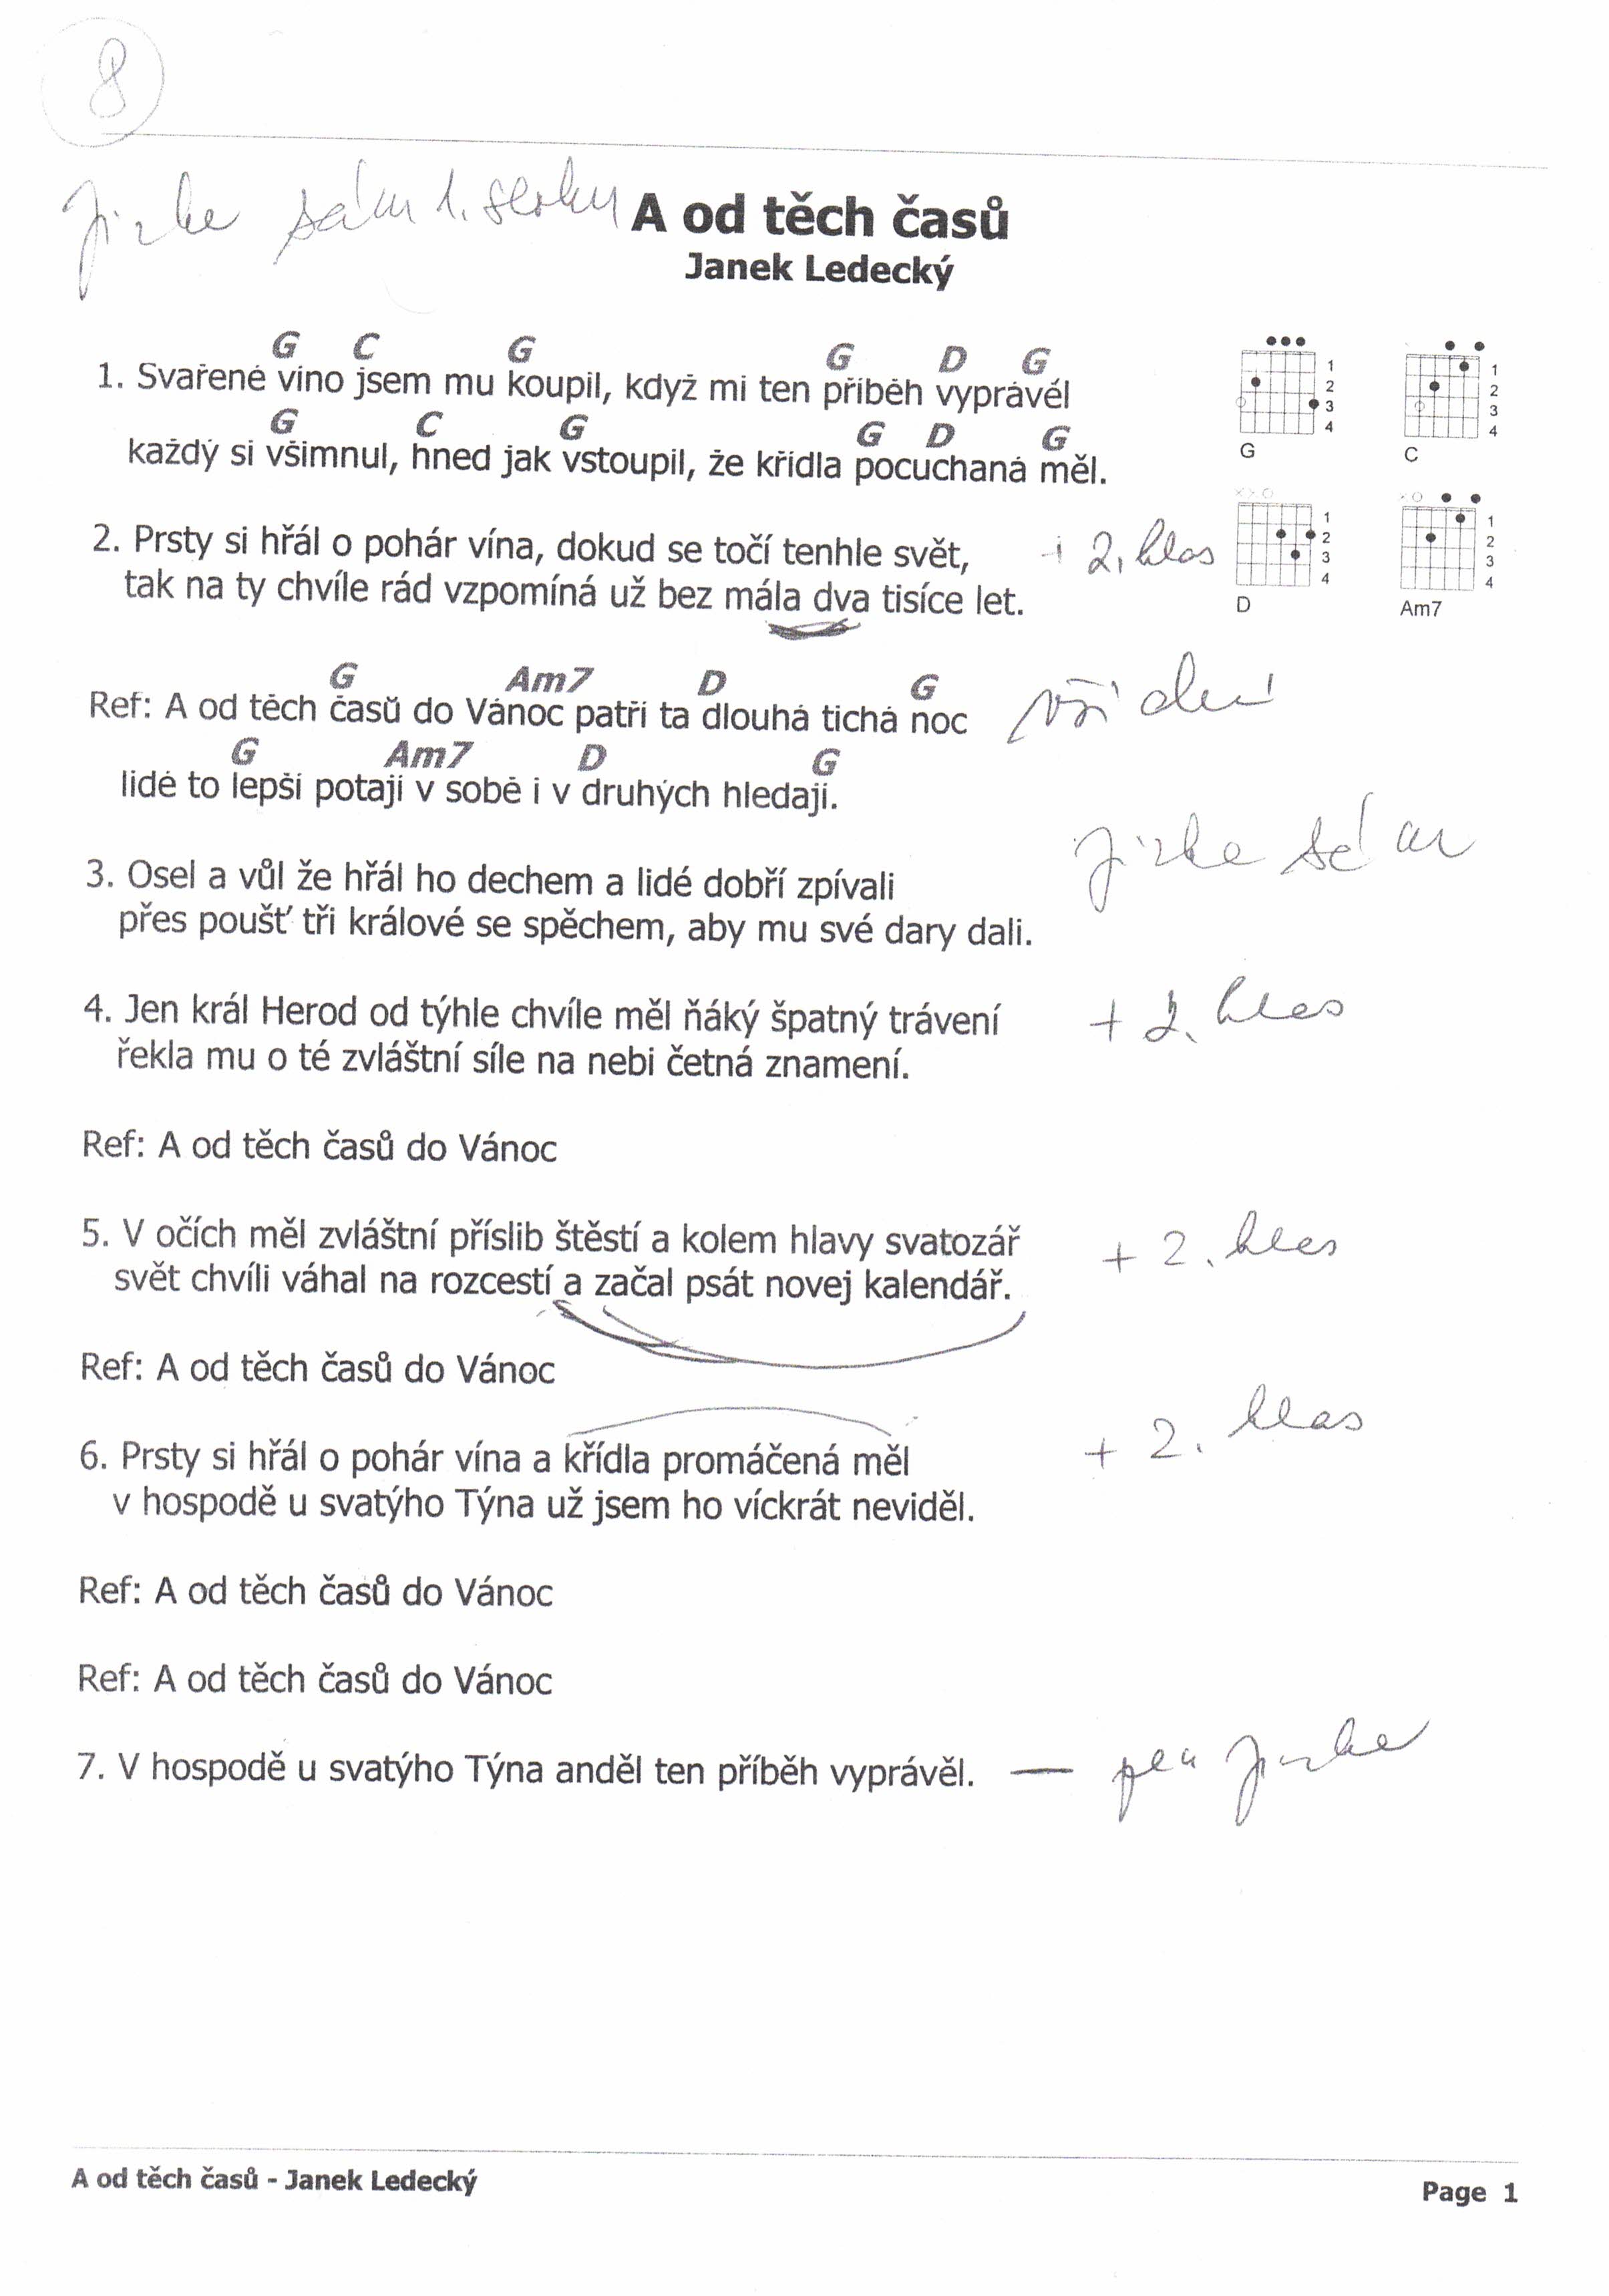 8
Jirka sám 1. sloku
A od těch časů
Janek Ledecký
G C G G D G
1. Svařené víno jsem mu koupil, když mi ten příběh vyprávěl
G C G G D G
každý si všimnul, hned jak vstoupil, že křídla pocuchaná měl.
1
2
3
4
G
1
2
3
4
C
2. Prsty si hřál o pohár vína, dokud se točí tenhle svět, + 2. hlas
tak na ty chvíle rád vzpomíná už bez mála dva tisíce let.
××○
1
2
3
4
D
×○
1
2
3
4
Am7
G Am7 D G
Ref: A od těch časů do Vánoc patří ta dlouhá tichá noc
G Am7 D G
lidé to lepší potají v sobě i v druhých hledají.
Jirka sám
3. Osel a vůl že hřál ho dechem a lidé dobří zpívali
přes poušť tři králové se spěchem, aby mu své dary dali.
4. Jen král Herod od týhle chvíle měl ňáký špatný trávení + 2. hlas
řekla mu o té zvláštní síle na nebi četná znamení.
Ref: A od těch časů do Vánoc
5. V očích měl zvláštní příslib štěstí a kolem hlavy svatozář + 2. hlas
svět chvíli váhal na rozcestí a začal psát novej kalendář.
Ref: A od těch časů do Vánoc
6. Prsty si hřál o pohár vína a křídla promáčená měl + 2. hlas
v hospodě u svatýho Týna už jsem ho víckrát neviděl.
Ref: A od těch časů do Vánoc
Ref: A od těch časů do Vánoc
7. V hospodě u svatýho Týna anděl ten příběh vyprávěl. — jen Jirka
A od těch časů - Janek Ledecký
Page 1